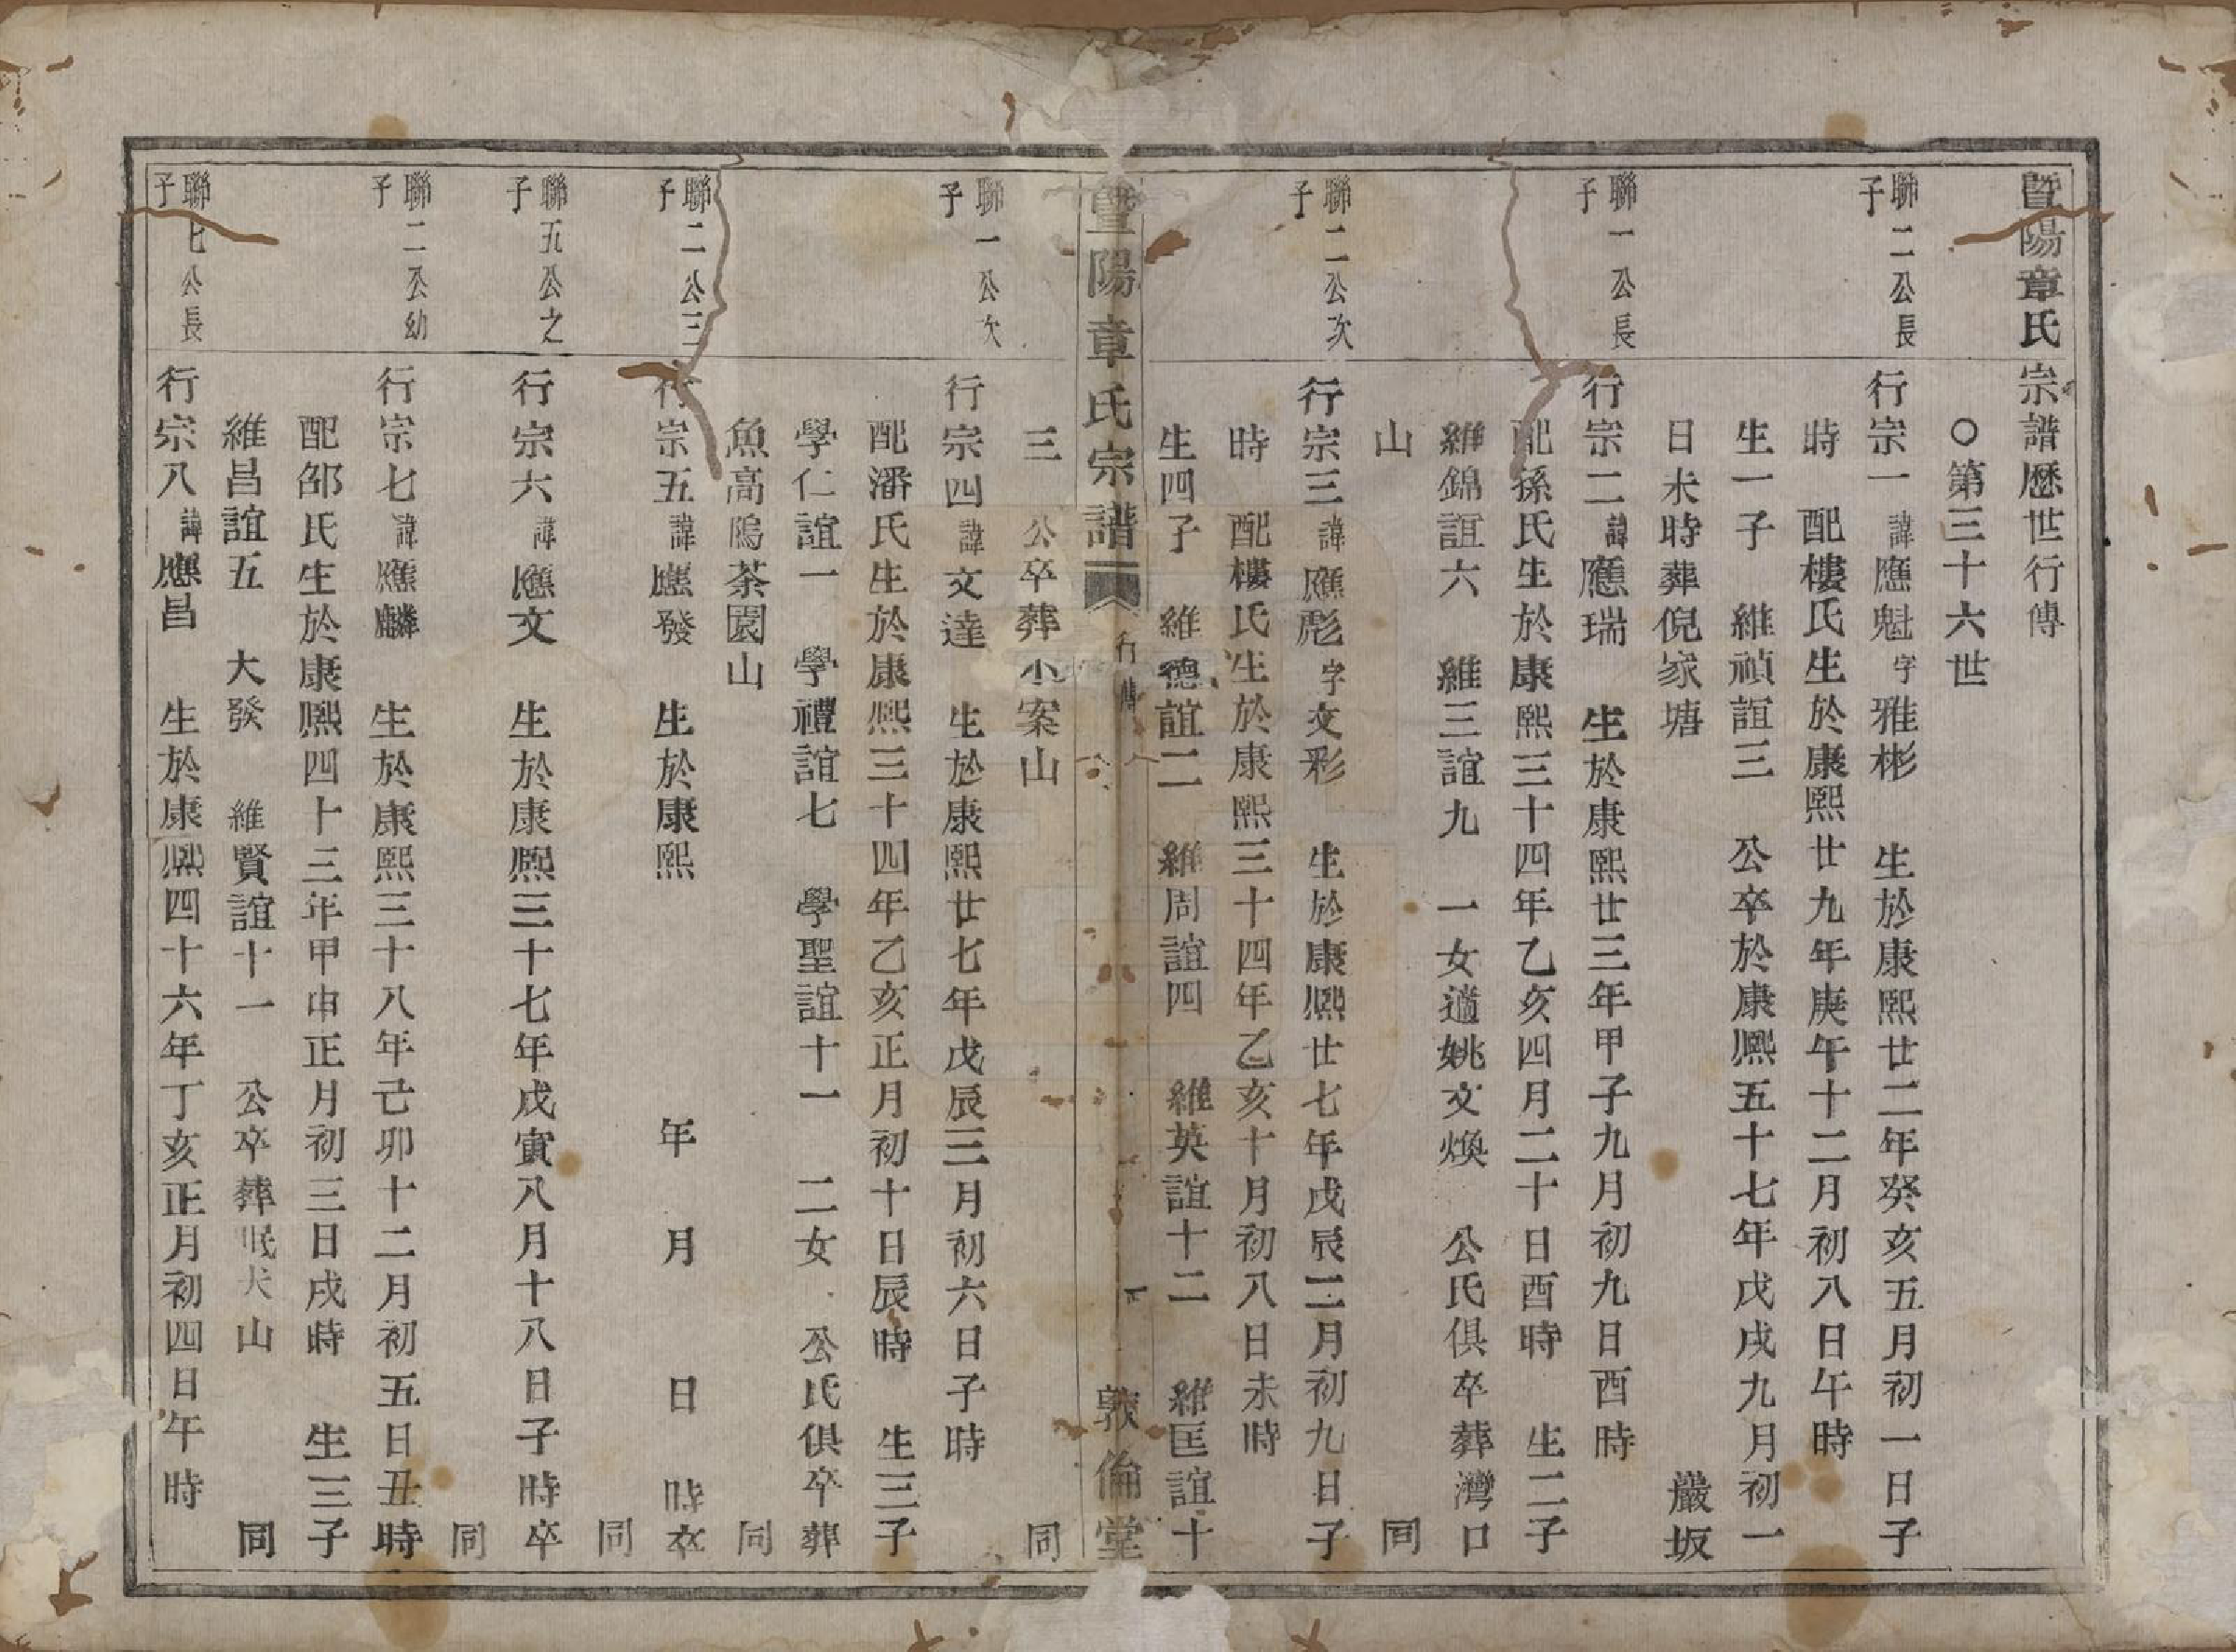 暨陽章氏宗譜歷世行傳
〇第三十六世
聯二公長子
行宗一諱應魁字雅彬 生於康熙廿二年癸亥五月初一日子
時 配樓氏生於康熙廿九年庚午十二月初八日午時
生一子 維禎誼三 公卒於康熙五十七年戊戌九月初一
日未時葬倪家塘 嚴坂
聯一公長子
行宗二諱應瑞 生於康熙廿三年甲子九月初九日酉時
配孫氏生於康熙三十四年乙亥四月二十日酉時 生二子
維錦誼六 維三誼九 一女適姚文煥 公氏俱卒葬灣口
山 同
聯二公次子
行宗三諱應彪字文彩 生於康熙廿七年戊辰二月初九日子
時 配樓氏生於康熙三十四年乙亥十月初八日未時
生四子 維德誼二 維周誼四 維英誼十二 維匡誼十
暨陽章氏宗譜 行傳 敦倫堂
三 公卒葬小案山 同
聯一公次子
行宗四諱文達 生於康熙廿七年戊辰三月初六日子時
配潘氏生於康熙三十四年乙亥正月初十日辰時 生三子
學仁誼一 學禮誼七 學聖誼十一 二女 公氏俱卒葬
魚高隖茶園山 同
聯二公三子
行宗五諱應發 生於康熙 年 月 日 時卒
同
聯五公之子
行宗六諱應文 生於康熙三十七年戊寅八月十八日子時卒
同
聯二公幼子
行宗七諱應麟 生於康熙三十八年己卯十二月初五日丑時
配邵氏生於康熙四十三年甲申正月初三日戌時 生三子
維昌誼五 大發 維賢誼十一 公卒葬眠犬山 同
聯七公長子
行宗八諱應昌 生於康熙四十六年丁亥正月初四日午時